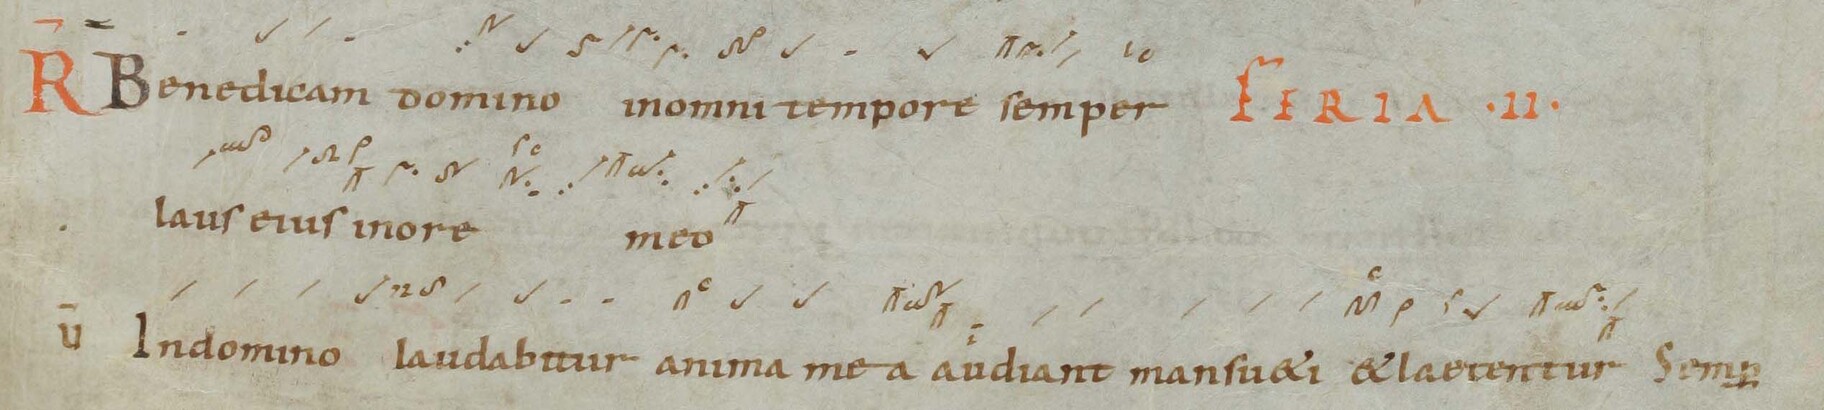 R̄ Benedicam domino inomni tempore semper FERIA ·II·
laus eius inore meo
v̄ Indomino laudabitur anima mea audiant mansu&i &laetentur Semp